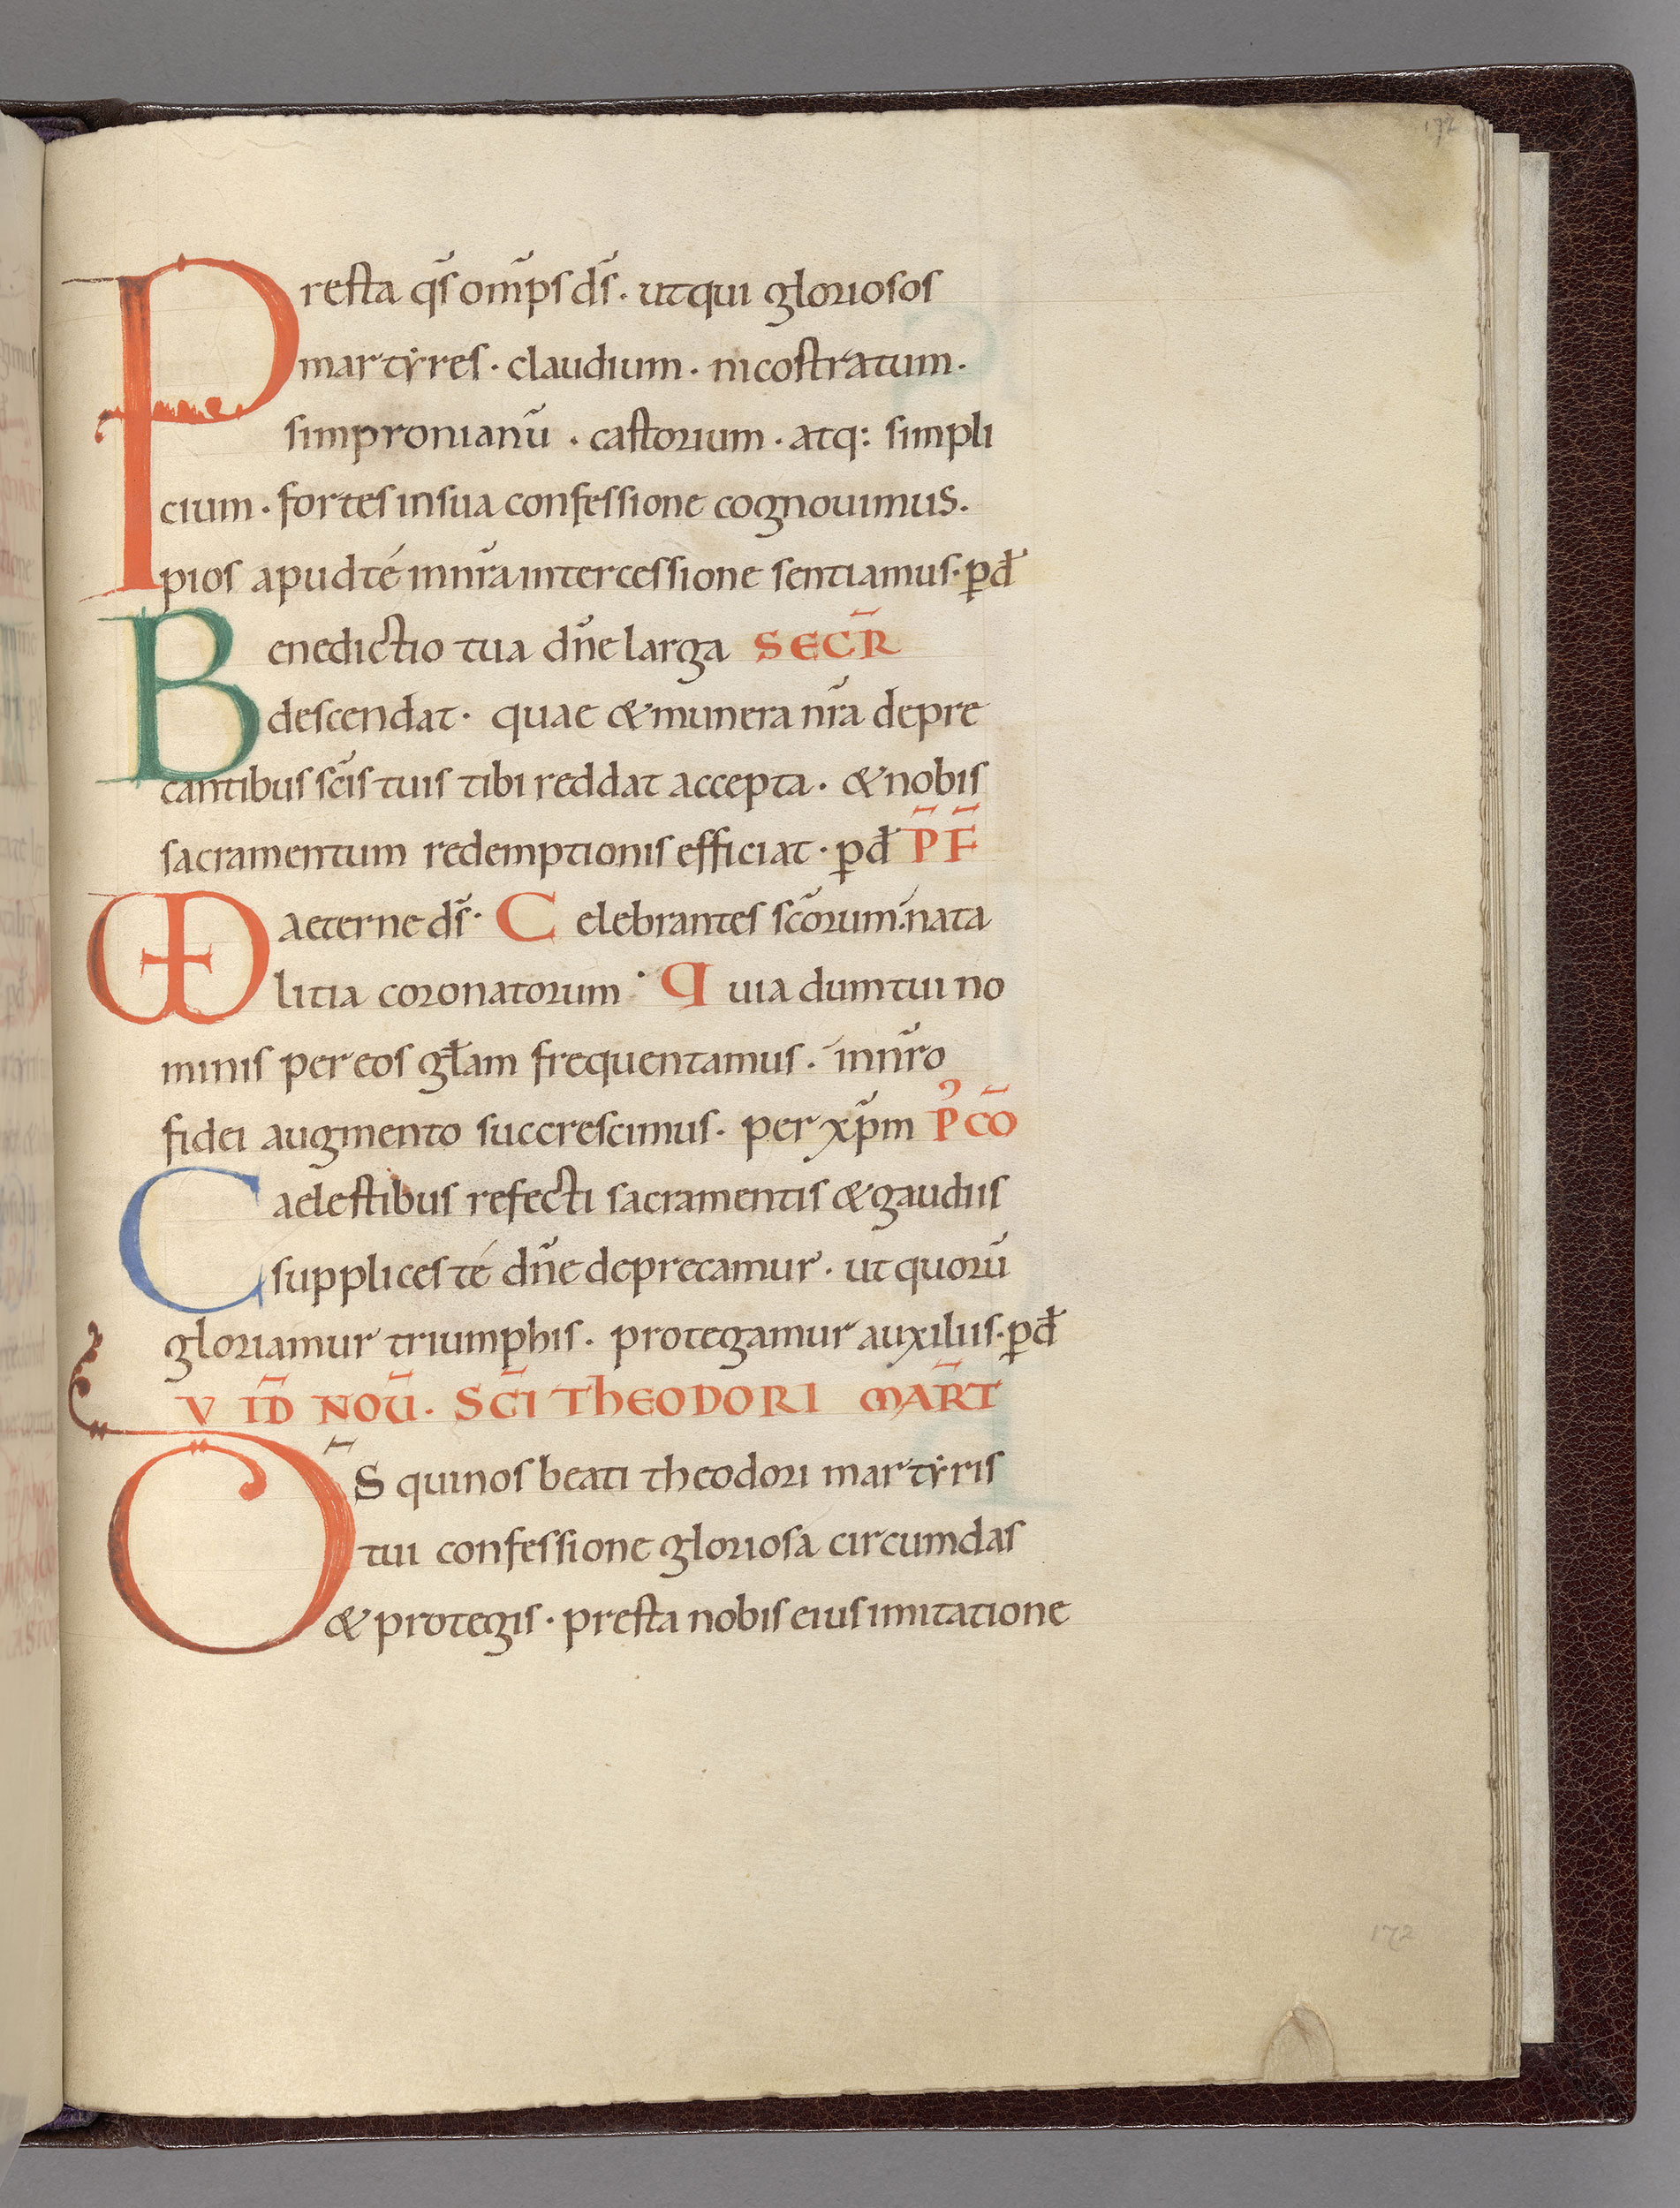 172
Presta qs̄ om̄ps ds̄. ut qui gloriosos
martẏres · claudium · nicostratum ·
simpronianū · castorium · atq: simpli
cium · fortes in sua confessione cognouimus.
pios apud té in nr̄a intercessione sentiamus · p d̄
Benedictio tua dn̄e larga SECR̄
descendat · quae & munera nr̄a depre
cantibus scīs tuis tibi reddat accepta · & nobis
sacramentum redemptionis efficiat · p d̄ P̄F̄
VD aeterne ds̄ · Celebrantes scōrum nata
litia coronatorum · Quia dum tui no
minis per eos gƚam frequentamus. in nr̄o
fidei augmento succrescimus. per xp̄m P̓ CŌ
Caelestibus refecti sacramentis & gaudiis
supplices té dn̄e deprecamur · ut quorū
gloriamur triumphis. protegamur auxiliis · p d̄
V ID̄ NOŪ. SC̄I THEODORI MAR̄T
D̄S qui nos beati theodori martẏris
tui confessione gloriosa circumdas
& protegis · presta nobis eius imitatione
172